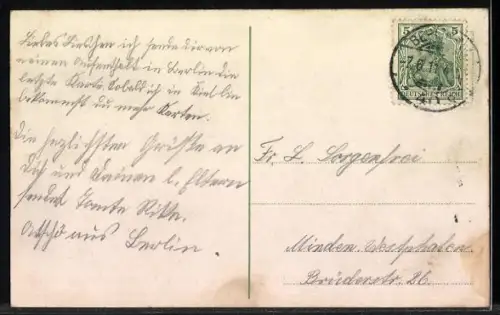 Liebes Lieschen ich sende dir von
meinen Aufenthalt in Berlin die
letzte Karte. Sobald ich in Kiel bin
bekommst du mehr Karten.
Die herzlichsten Grüße an
Dich und Deinen l. Eltern
sendet Tante Rikke.
aus Berlin.
5 5
DEUTSCHES REICH
Fr. L. Sorgenfrei
Minden. Westphalen.
Brüderstr. 26.